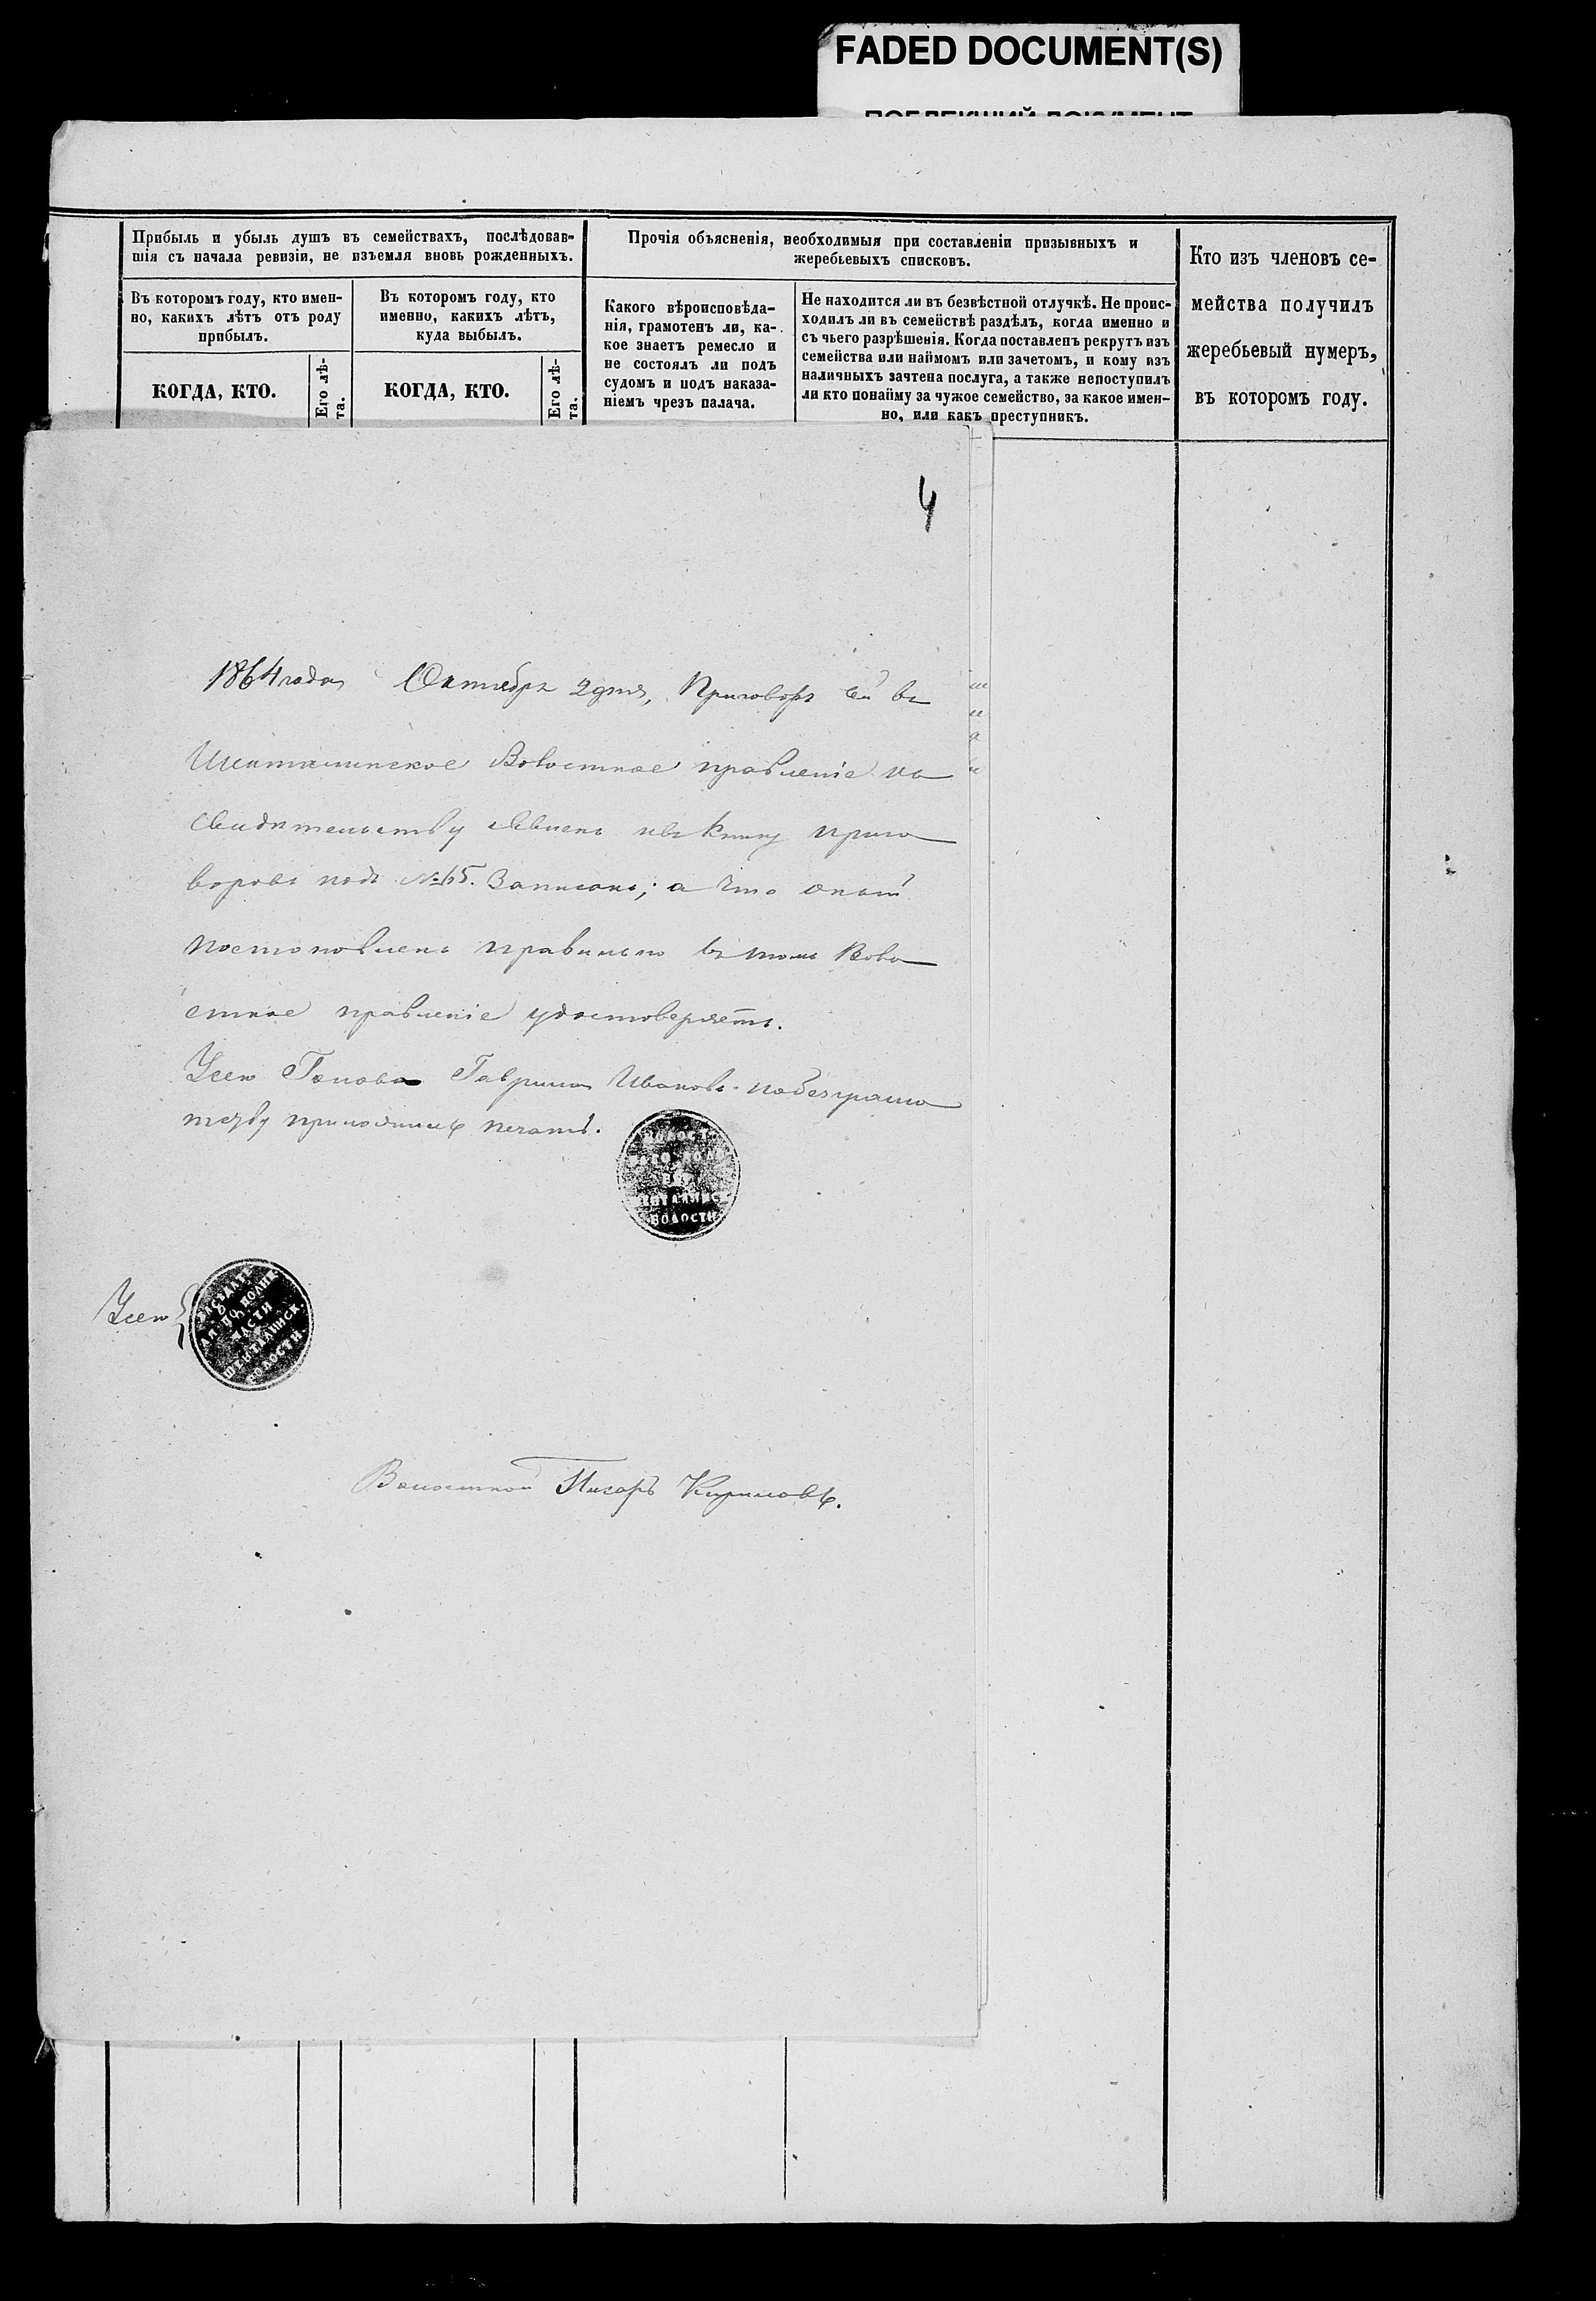 FADED DOCUMENT(S)
ПОБЛЕКШИЙ ДОКУМЕНТ
Прибыль и убыль душъ въ семействахъ, послѣдовав-
шія съ начала ревизіи, не изъемля вновь рожденныхъ.
Въ которомъ году, кто имен-
но, какихъ лѣтъ отъ роду
прибылъ.
Въ которомъ году, кто
именно, какихъ лѣтъ,
куда выбылъ.
КОГДА, КТО.
Его лѣ-
та.
КОГДА, КТО.
Его лѣ-
та.
Прочія объясненія, необходимыя при составленіи призывныхъ и
жеребьевыхъ списковъ.
Какого вѣроисповѣда-
нія, грамотенъ ли, ка-
кое знаетъ ремесло и
не состоялъ ли подъ
судомъ и подъ наказа-
ніемъ чрезъ палача.
Не находится ли въ безвѣстной отлучкѣ. Не проис-
ходилъ ли въ семействѣ раздѣлъ, когда именно и
съ чьего разрѣшенія. Когда поставленъ рекрутъ изъ
семейства или наймомъ или зачетомъ, и кому изъ
наличныхъ зачтена послуга, а также непоступилъ
ли кто понайму за чужое семейство, за какое имен-
но, или какъ преступникъ.
Кто изъ членовъ се-
мейства получилъ
жеребьевый нумеръ,
въ которомъ году.
4
1864 года Октября 2 дня, Приговоръ сей въ
Шенталинское Волостное правленіе къ
свидительству явленъ ивъ книгу приго
воровъ подъ №65. Записанъ; а что оный
постоновленъ правильно въ томъ Воло
стное правленіе удостоверяетъ.
Гаврила Ивановъ побезграмо
тству приложилъ печать.
ВОЛОСТИ
ШЕНТАЛИНСК
ВОЛОСТИ
Волостной Писарь Кириловъ.